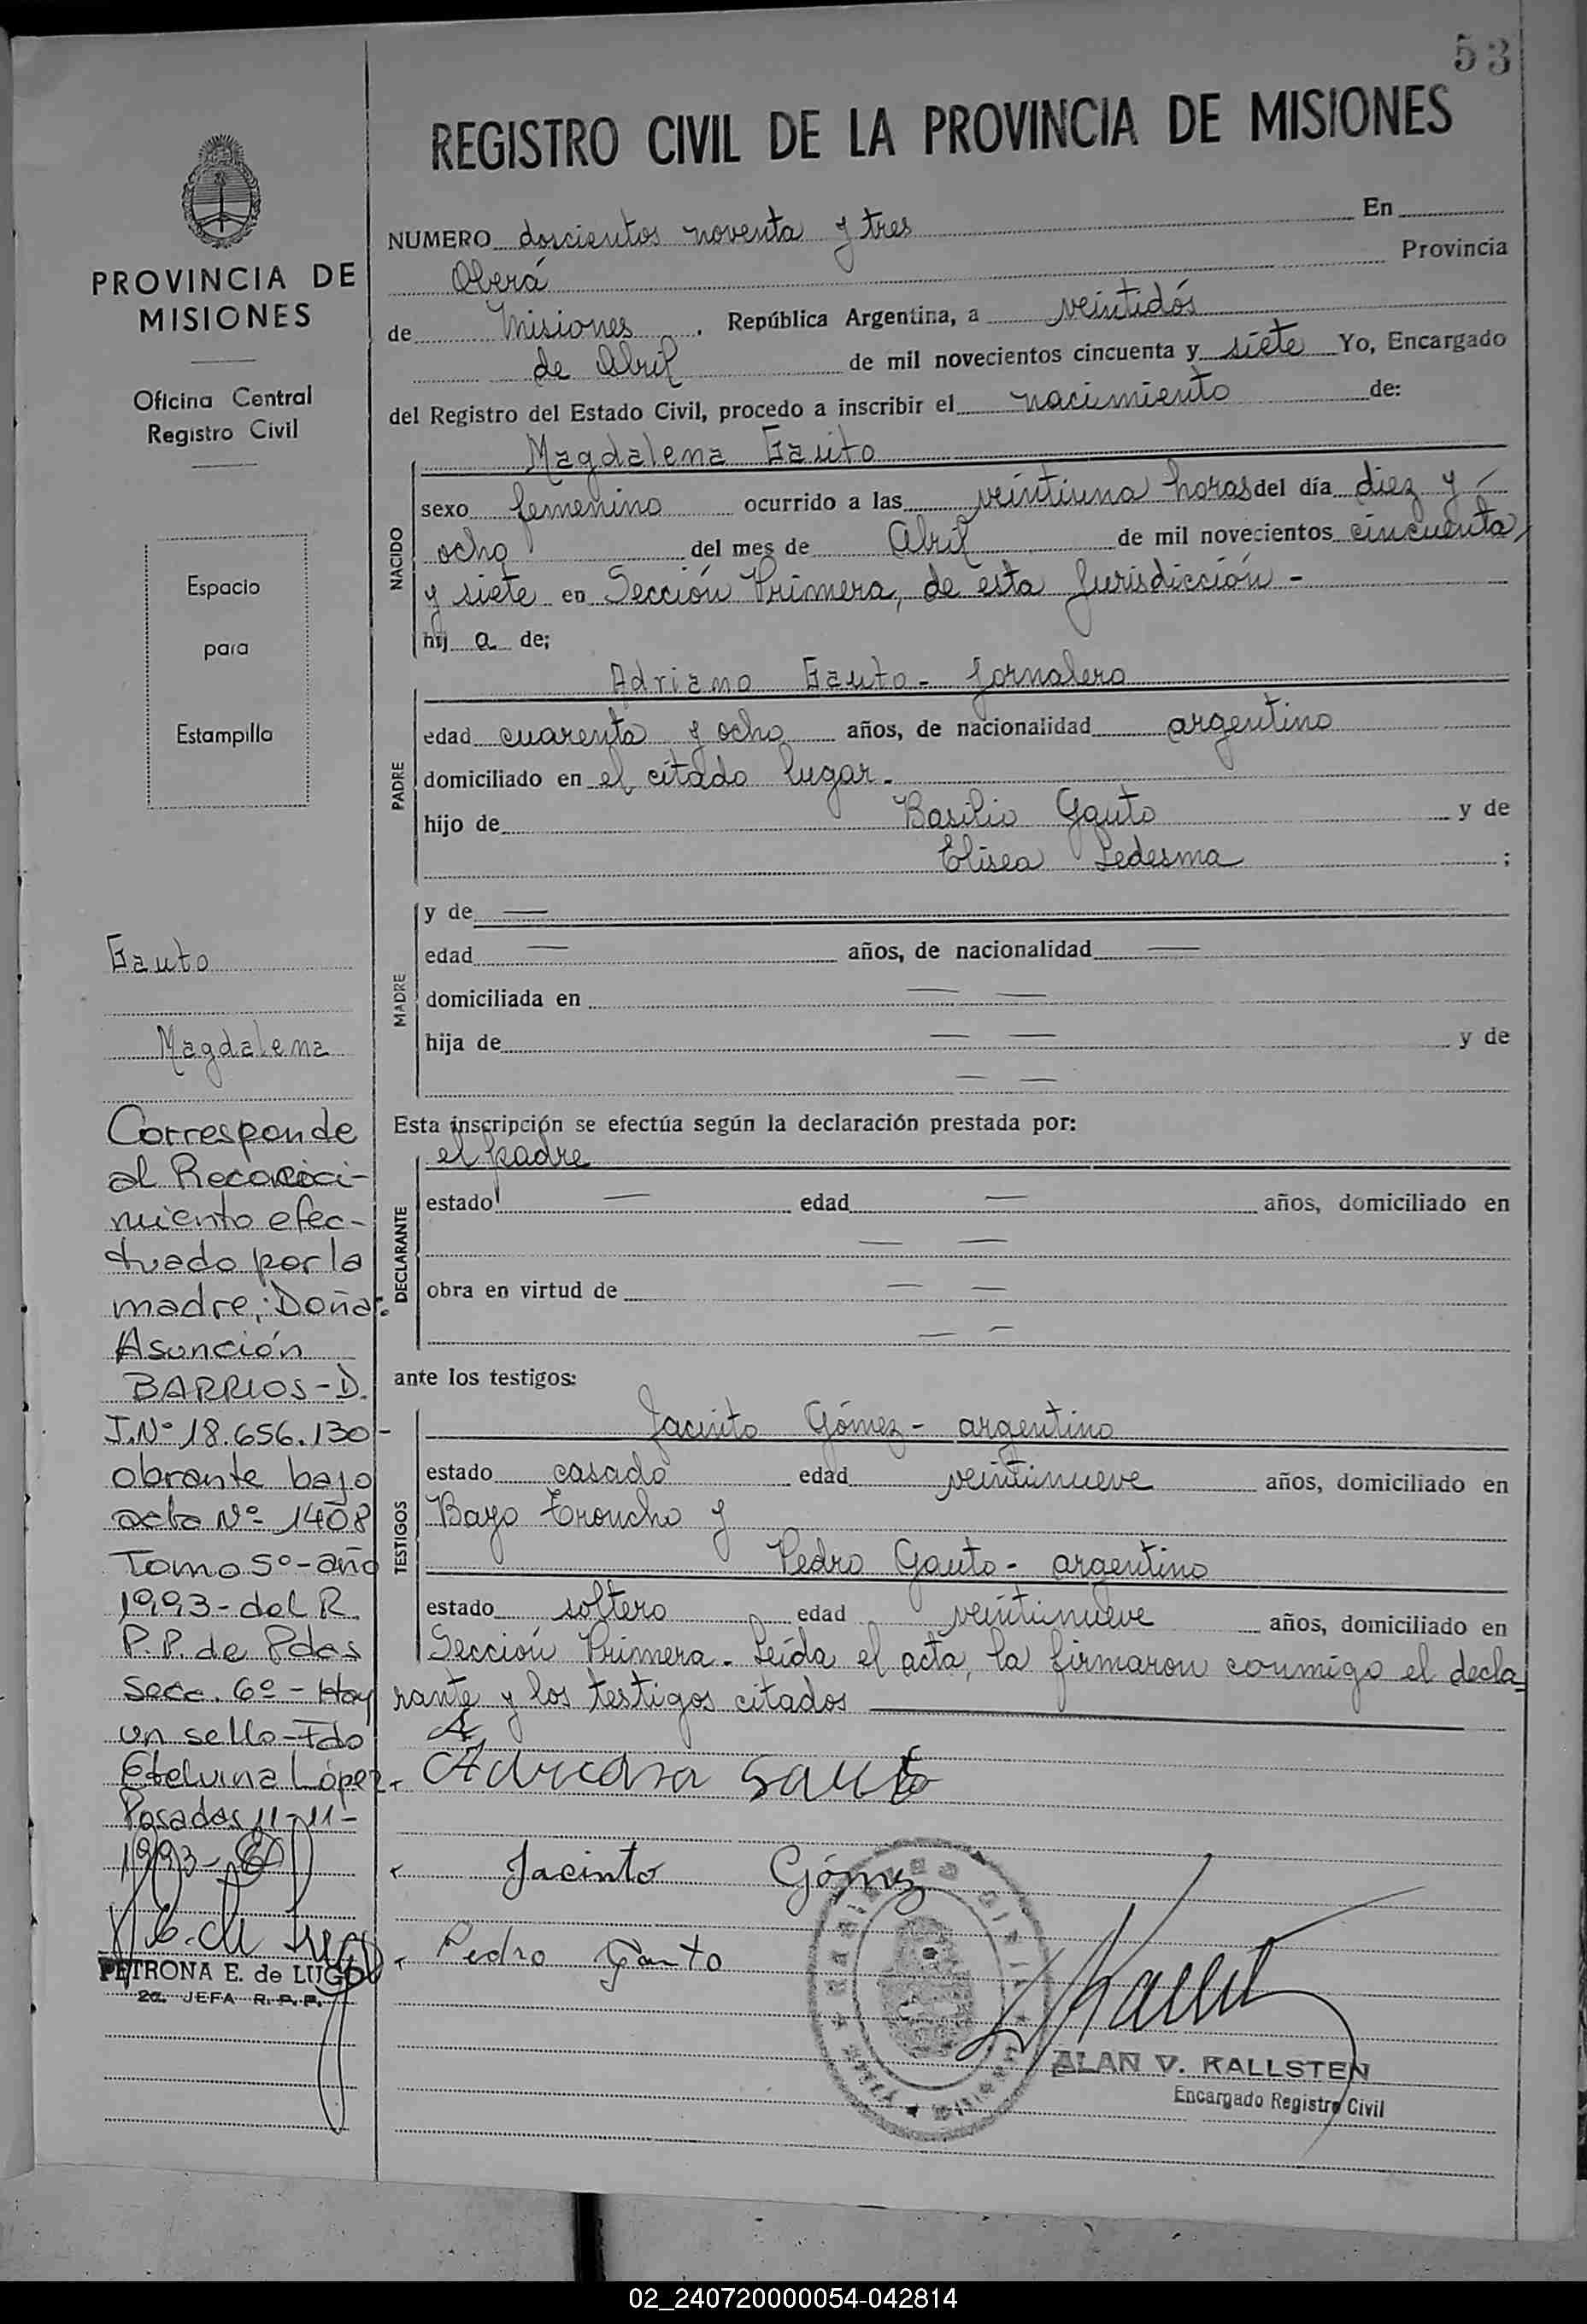 53
REGISTRO CIVIL DE LA PROVINCIA DE MISIONES
NUMERO doscientos noventa y tres En
Oberá Provincia
de Misiones, República Argentina, a veintidós
de Abril de mil novecientos cincuenta y siete Yo, Encargado
del Registro del Estado Civil, procedo a inscribir el nacimiento de:
NACIDO
Magdalena Gauto
sexo femenino ocurrido a las veintiuna horas del día diez y
ocho del mes de Abril de mil novecientos cincuenta
y siete en Sección Primera, de esta Jurisdicción -
hij a de;
PADRE
Adriano Gauto - Jornalero
edad cuarenta y ocho años, de nacionalidad argentino
domiciliado en el citado lugar.
hijo de Basilio Gauto y de
Elisea Ledesma ;
MADRE
y de —
edad — años, de nacionalidad —
domiciliada en — —
hija de — — y de
— —
Esta inscripción se efectúa según la declaración prestada por:
DECLARANTE
el padre
estado — edad — años, domiciliado en
— —
obra en virtud de — —
— —
ante los testigos:
TESTIGOS
Jacinto Gómez - argentino
estado casado edad veintinueve años, domiciliado en
Bayo Troncho y
Pedro Gauto - argentino
estado soltero edad veintinueve años, domiciliado en
Sección Primera. Leída el acta, la firmaron conmigo el decla-
rante y los testigos citados
Gauto
Jacinto Gómez
Pedro Gauto
ALAN V. RALLSTEN
Encargado Registro Civil
PROVINCIA DE
MISIONES
Oficina Central
Registro Civil
Espacio
para
Estampilla
Gauto
Magdalena
Corresponde
al Reconoci-
miento efec-
tuado por la
madre; Doña
Asunción
BARRIOS - D.
I. Nº 18.656.130 -
obrante bajo
acta Nº 1408
Tomo 5º - año
1993 - del R.
P.P. de Pdas
Secc. 6º - Hay
un sello - Fdo
Etelvina López.
Posadas 11-11-
1993 -
PETRONA E. de LUGO
2a. JEFA R. P. P.
02_240720000054-042814